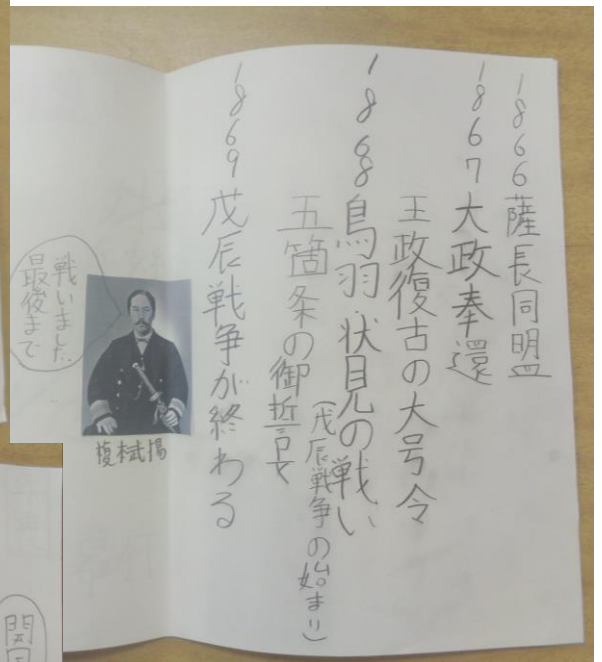 1866薩長同盟
1867大政奉還
王政復古の大号令
1868鳥羽・状見の戦い
(戊辰戦争の始まり)
五箇条の御誓文
1869戊辰戦争が終わる
榎本武揚
最後まで
戦いました